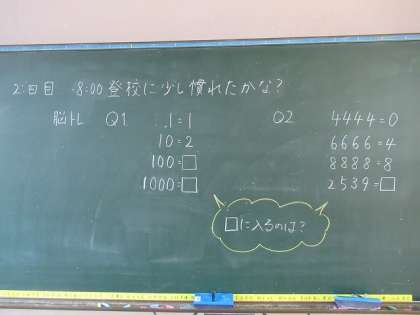 2日目 8:00登校に少し慣れたかな?
脳トレ Q1
1=1
10=2
100=□
1000=□
Q2
4444=0
6666=4
8888=8
2539=□
□に入るのは?